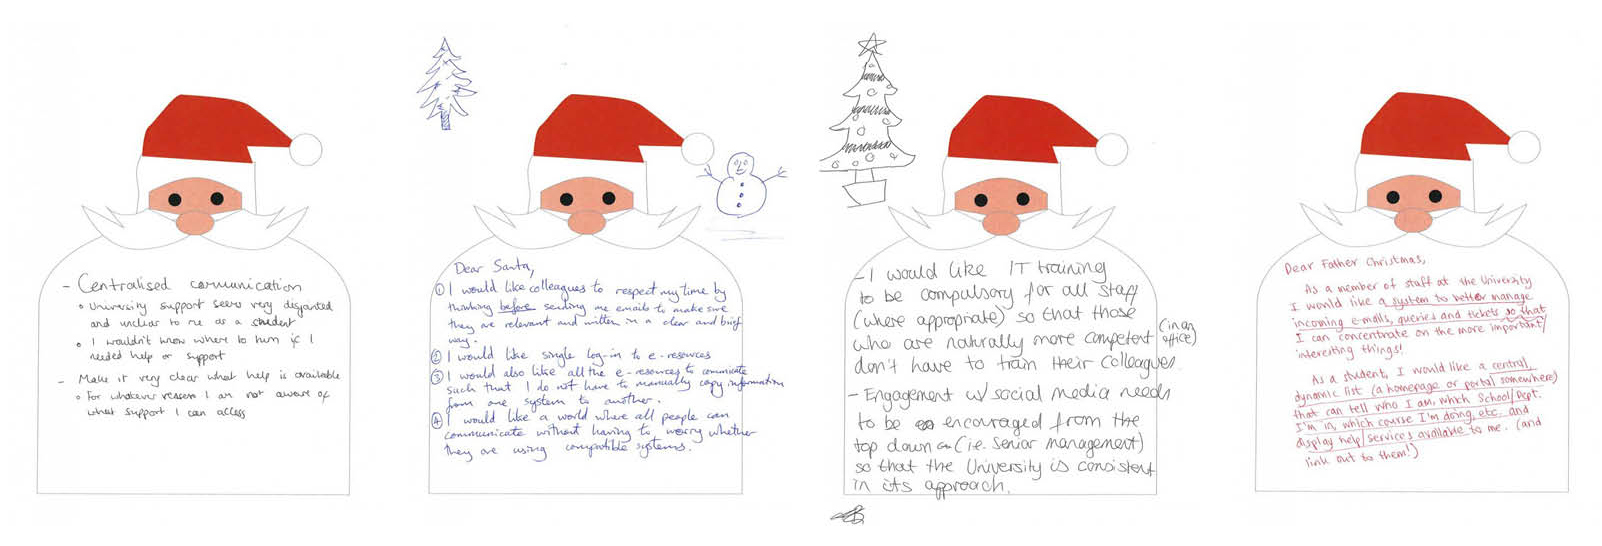 - Centralised communication
• University support seems very disjointed
and unclear to me as a student
• I wouldn't know where to turn if I
needed help or support
- Make it very clear what help is available
• For whatever reason I am not aware of
what support I can access
Dear Santa,
① I would like colleagues to respect my time by
thinking before sending me emails to make sure
they are relevant and written in a clear and brief
way.
② I would like single log-in to e-resources
③ I would also like all the e-resources to communicate
such that I do not have to manually copy information
from one system to another.
④ I would like a world where all people can
communicate without having to worry whether
they are using compatible systems.
- I would like IT training
to be compulsory for all staff
(where appropriate) so that those
who are naturally more competent (in an office)
don't have to train their colleagues.
- Engagement w/ social media needs
to be encouraged from the
top down (i.e. senior management)
so that the University is consistent
in its approach.
Dear Father Christmas,
As a member of staff at the University
I would like a system to better manage
incoming e-mails, queries and tickets so that
I can concentrate on the more important/
interesting things!
As a student, I would like a central,
dynamic list (a homepage or portal somewhere)
that can tell who I am, which School/Dept.
I'm in, which course I'm doing, etc. and
display help/services available to me. (and
link out to them!)